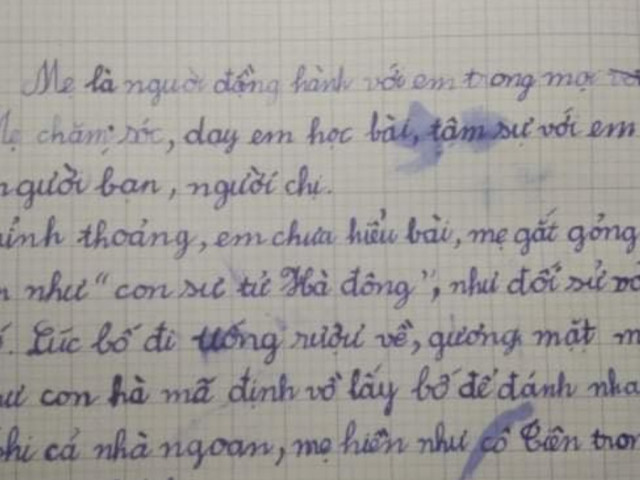 Mẹ là người đồng hành với em trong mọi
chăm sóc, dạy em học bài, tâm sự với em
người bạn, người chị.
thỉnh thoảng, em chưa hiểu bài, mẹ gắt gỏng
như "con sư tử Hà đông", như đối sử
Lúc bố đi uống rượu về, gương mặt
con hà mã định vồ lấy bố để đánh
cả nhà ngoan, mẹ hiền như cô Tiên